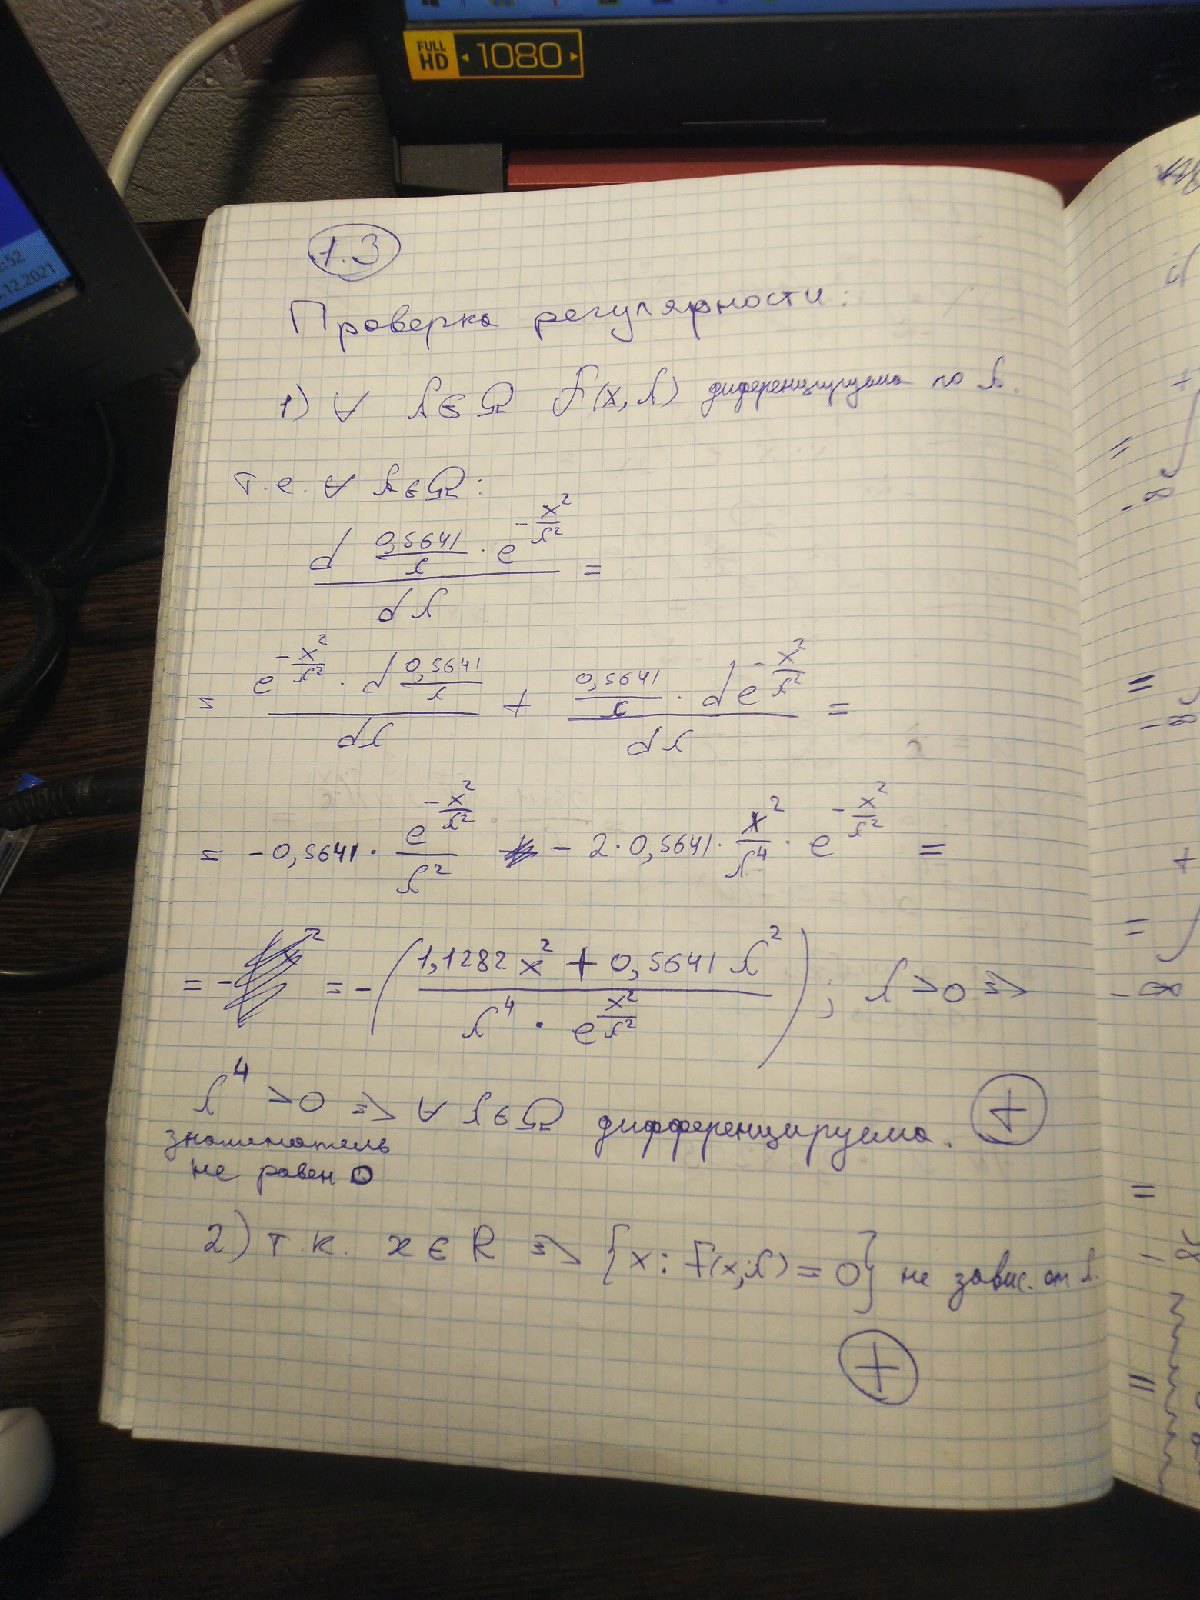 FULL HD 1080
:52
.12.2021
1.3
Проверка регулярности:
1) ∀ λ∈Ω F(x,λ) диференцируема по λ.
т.е. ∀ λ∈Ω:
d 0,5641/λ · e^(-x²/λ²) / dλ =
= e^(-x²/λ²) · d 0,5641/λ / dλ + 0,5641/λ · d e^(-x²/λ²) / dλ =
= -0,5641 · e^(-x²/λ²) / λ² - 2·0,5641 · x²/λ⁴ · e^(-x²/λ²) =
= - = -( (1,1282x² + 0,5641λ²) / (λ⁴ · e^(x²/λ²)) ); λ>0 =>
λ⁴ >0 => ∀ λ∈Ω дифференцируема. +
знаменатель
не равен 0
2) т.к. x∈R => {x: F(x,λ) = 0} не завис. от λ.
+